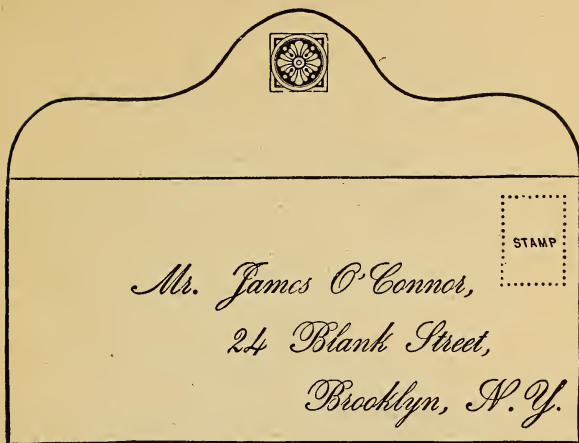 STAMP
Mr. James O'Connor,
24 Blank Street,
Brooklyn, N. Y.